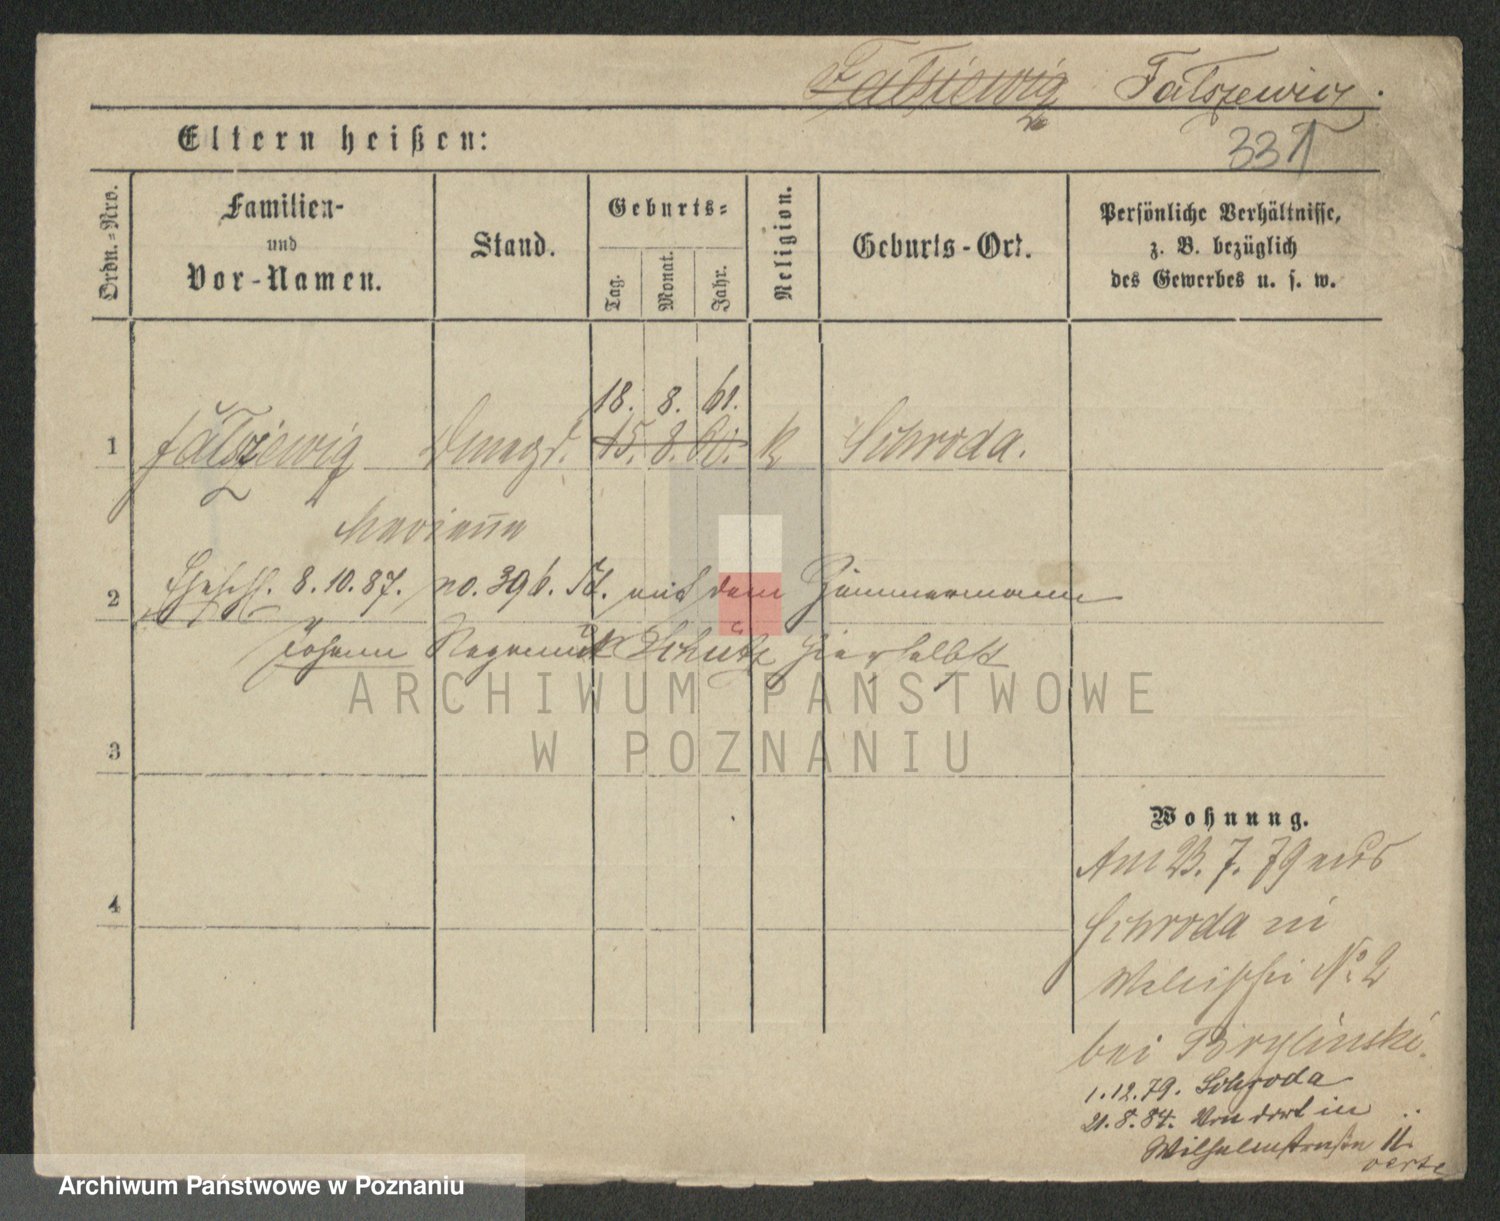 Fałsiewiz Fatszewicz.
Eltern heißen:
331
Ordn.=Nro.
Familien-
und
Vor-Namen.
Stand.
Geburts=
Tag.
Monat.
Jahr.
Religion.
Geburts-Ort.
Persönliche Verhältnisse,
z. B. bezüglich
des Gewerbes u. s. w.
18. 8. 61.
1 15. 8. k Schroda.
Marianna
2 8. 10. 87. no. 396. mit dem Zimmermann
Johann Schütz hierselbst
ARCHIWUM PAŃSTWOWE
W POZNANIU
3
Wohnung.
Am 23. 7. 79 aus
4
Schroda in
No. 2
bei Brylinski.
1. 12. 79. Schroda
21. 8. 84. Von dort in
Wilhelmstraße 11.
verte
Archiwum Państwowe w Poznaniu